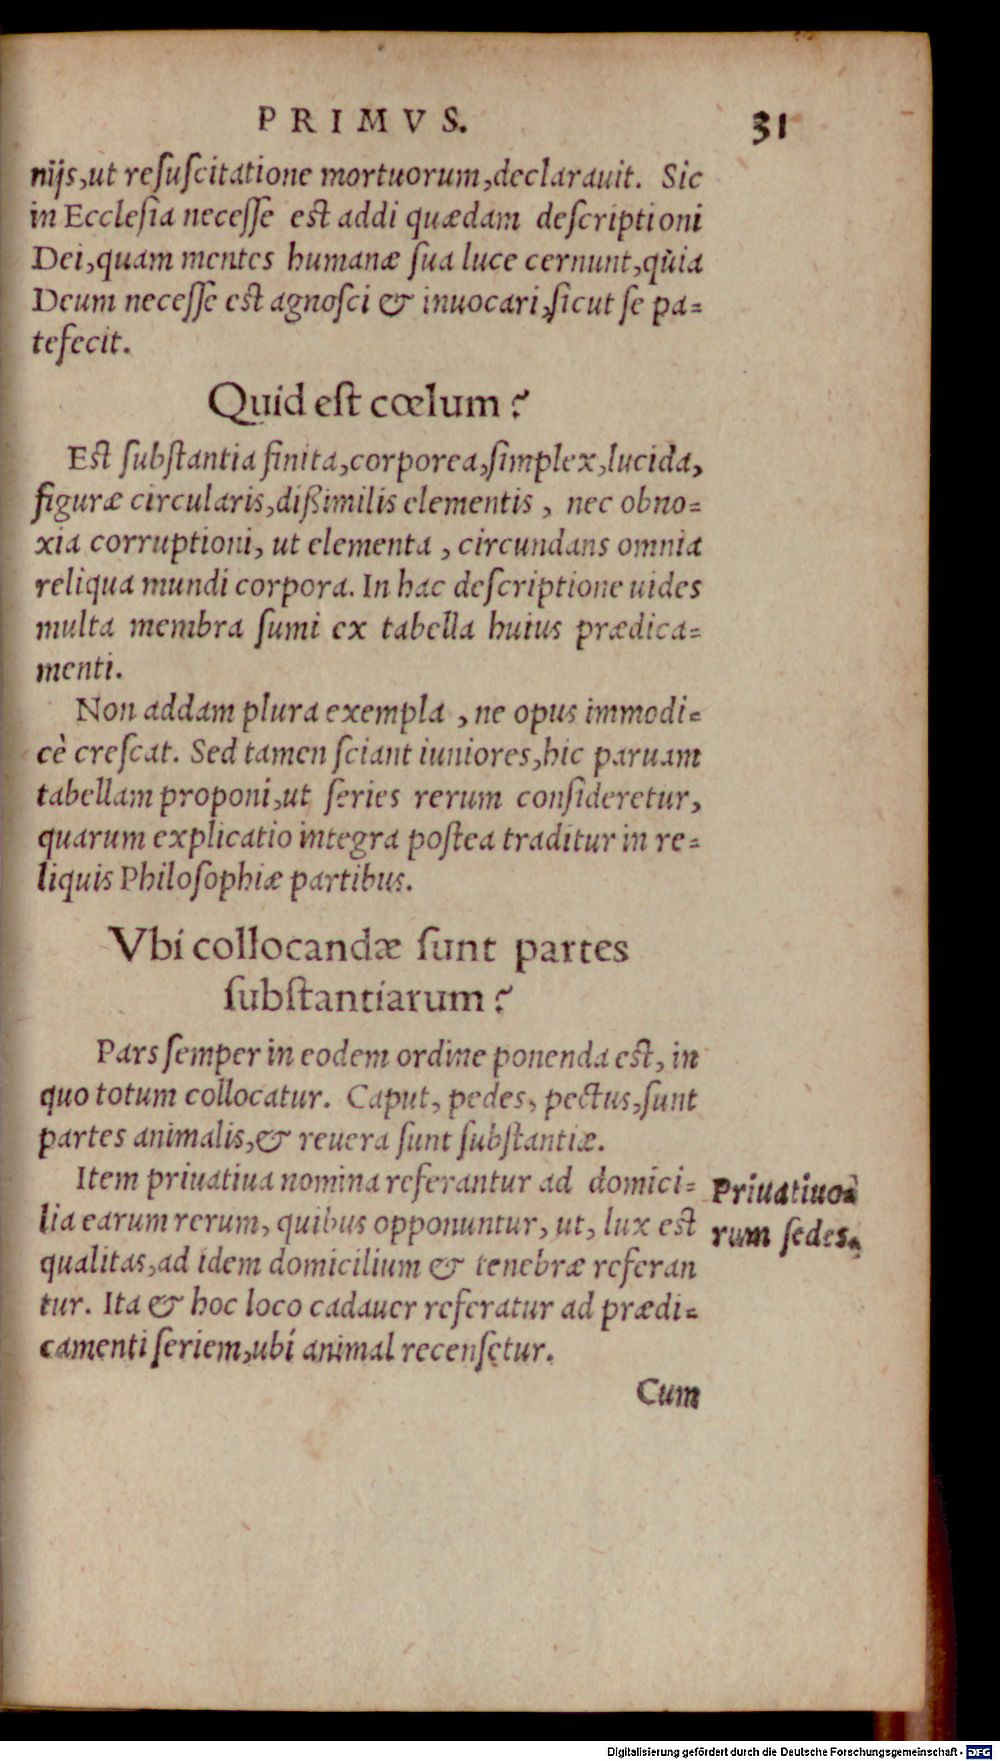 PRIMVS. 31
nijs, ut resuscitatione mortuorum, declarauit. Sic
in Ecclesia necesse est addi quædam descriptioni
Dei, quam mentes humanæ sua luce cernunt, quia
Deum necesse est agnosci & inuocari, sicut se pa-
tefecit.
Quid est cœlum?
Est substantia finita, corporea, simplex, lucida,
figuræ circularis, dißimilis elementis, nec obno-
xia corruptioni, ut elementa, circundans omnia
reliqua mundi corpora. In hac descriptione uides
multa membra sumi ex tabella huius prædica-
menti.
Non addam plura exempla, ne opus immodi-
cè crescat. Sed tamen sciant iuniores, hic paruam
tabellam proponi, ut series rerum consideretur,
quarum explicatio integra postea traditur in re-
liquis Philosophiæ partibus.
Vbi collocandæ sunt partes
substantiarum?
Pars semper in eodem ordine ponenda est, in
quo totum collocatur. Caput, pedes, pectus, sunt
partes animalis, & reuera sunt substantiæ.
Item priuatiua nomina referantur ad domici-
lia earum rerum, quibus opponuntur, ut, lux est
qualitas, ad idem domicilium & tenebræ referan
tur. Ita & hoc loco cadauer referatur ad prædi-
camenti seriem, ubi animal recensetur.
Priuatiuo-
rum sedes.
Cum
Digitalisierung gefördert durch die Deutsche Forschungsgemeinschaft - DFG